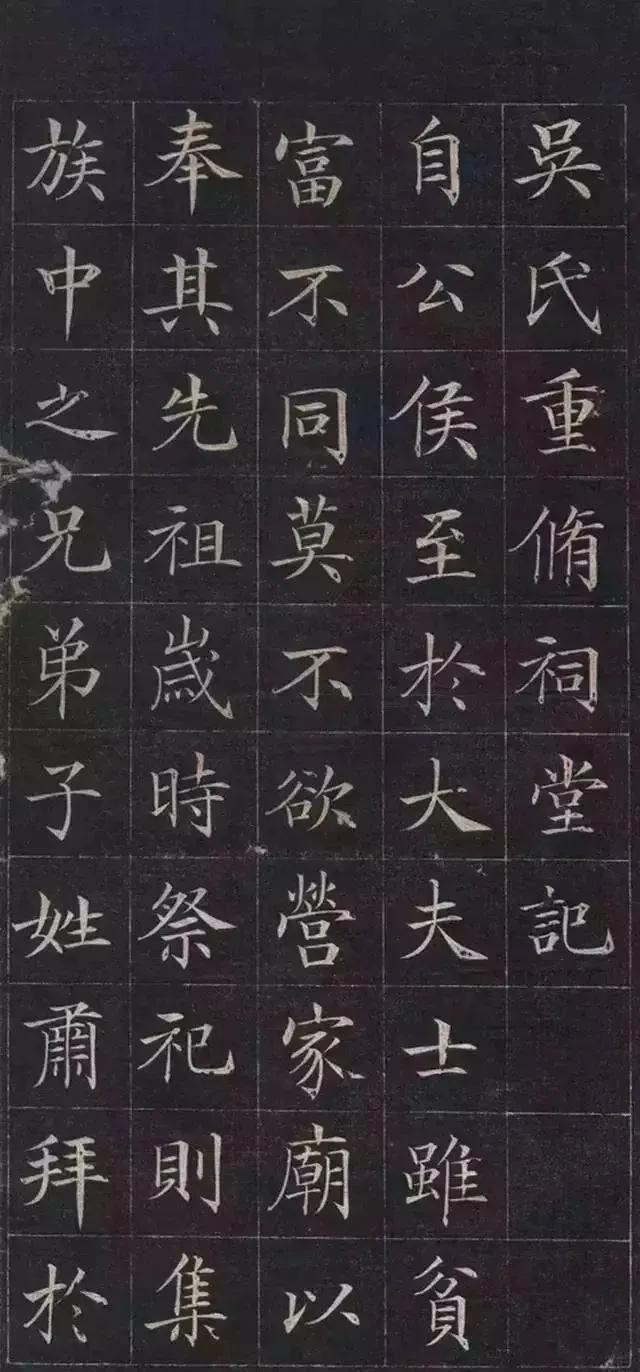 吳氏重脩祠堂記
自公侯至於大夫士雖貧
富不同莫不欲營家廟以
奉其先祖歲時祭祀則集
族中之兄弟子姓肅拜於